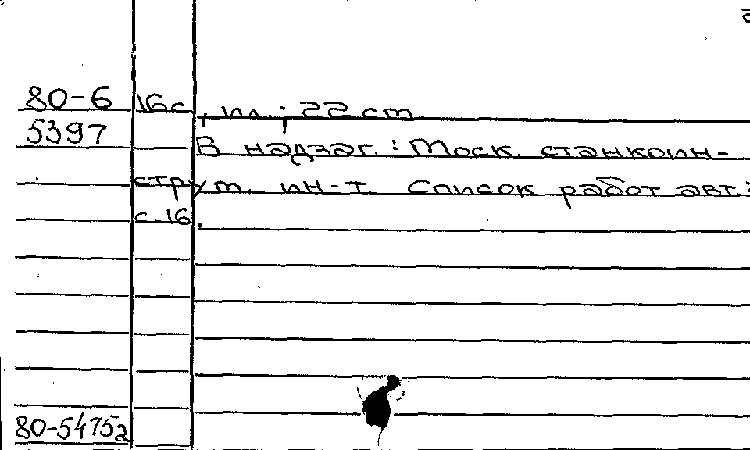 80-6 16с., ил.; 22 cm
5397 В надзаг.: Моск. станкоин-
струм. ин-т. Список работ авт.:
с. 16.
80-54752